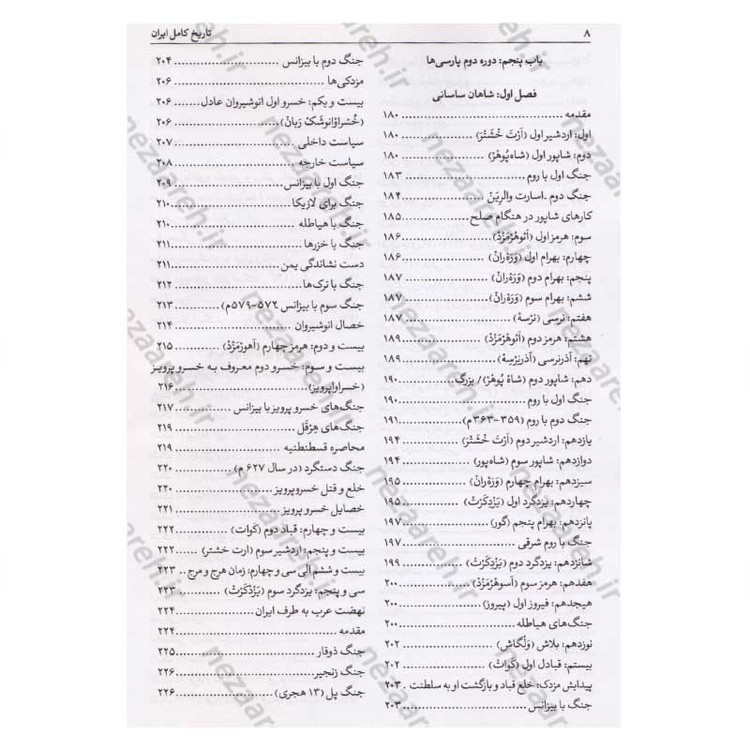 ۸
تاریخ کامل ایران
باب پنجم: دوره دوم پارسی‌ها
فصل اول: شاهان ساسانی
مقدمه ........ ۱۸۰
اول: اردشیر اول (اَرْتَ خْشَتْرَ) ........ ۱۸۰
دوم: شاپور اول (شاه‌پُوهْرْ) ........ ۱۸۰
جنگ اول با روم ........ ۱۸۳
جنگ دوم ـ اسارت والریَن ........ ۱۸۴
کارهای شاپور در هنگام صلح ........ ۱۸۵
سوم: هرمز اول (اَئوهْرْمَزْدْ) ........ ۱۸۶
چهارم: بهرام اول (وَرَهْرانْ) ........ ۱۸۶
پنجم: بهرام دوم (وَرَهْرانْ) ........ ۱۸۷
ششم: بهرام سوم (وَرَهْرانْ) ........ ۱۸۷
هفتم: نرسی (نَرْسهْ) ........ ۱۸۷
هشتم: هرمز دوم (اَئوهْرْمَزْدْ) ........ ۱۸۹
نهم: آذرنرسی (آذَرنَرْسِهْ) ........ ۱۸۹
دهم: شاپور دوم (شاهْ پُوهْرْ)/ بزرگ ........ ۱۹۰
جنگ اول با روم ........ ۱۹۰
جنگ دوم با روم (۳۵۹-۳۶۳ م) ........ ۱۹۱
یازدهم: اردشیر دوم (اَرْتَ خْشَتْرَ) ........ ۱۹۴
دوازدهم: شاپور سوم (شاه‌پور) ........ ۱۹۴
سیزدهم: بهرام چهارم (وَرَهْرانْ) ........ ۱۹۵
چهاردهم: یزدگرد اول (یَزْدْکَرْتْ) ........ ۱۹۵
پانزدهم: بهرام پنجم (گور) ........ ۱۹۷
جنگ با روم شرقی ........ ۱۹۷
شانزدهم: یزدگرد دوم (یَزْدْکَرْتْ) ........ ۱۹۹
هفدهم: هرمز سوم (اَسوهْرْمَزْدْ) ........ ۲۰۰
هیجدهم: فیروز اول (پیروز) ........ ۲۰۰
جنگ‌های هیاطله ........ ۲۰۰
نوزدهم: بلاش (وَلْگاش) ........ ۲۰۲
بیستم: قباد اول (کَوات) ........ ۲۰۲
پیدایش مزدک: خلع قباد و بازگشت او به سلطنت . ۲۰۳
جنگ با بیزانس ........ ۲۰۳
جنگ دوم با بیزانس ........ ۲۰۴
مزدکی‌ها ........ ۲۰۶
بیست و یکم: خسرو اول انوشیروان عادل ........ ۲۰۶
(خُسْراوْانوشَکْ رَبانْ) ........ ۲۰۶
سیاست داخلی ........ ۲۰۷
سیاست خارجه ........ ۲۰۸
جنگ اول با بیزانس ........ ۲۰۹
جنگ برای لازیکا ........ ۲۱۰
جنگ با هیاطله ........ ۲۱۰
جنگ با خزرها ........ ۲۱۱
دست نشاندگی یمن ........ ۲۱۱
جنگ با ترک‌ها ........ ۲۱۲
جنگ سوم با بیزانس ۵۷۲-۵۷۹م) ........ ۲۱۳
خصال انوشیروان ........ ۲۱۴
بیست و دوم: هرمز چهارم (اَهورْمَزْدْ) ........ ۲۱۵
بیست و سوم: خسرو دوم معروف به خسرو پرویز
(خسراواپرویز) ........ ۲۱۶
جنگ‌های خسرو پرویز با بیزانس ........ ۲۱۷
جنگ‌های هِرْقِل ........ ۲۱۹
محاصره قسطنطنیه ........ ۲۱۹
جنگ دستگرد (در سال ۶۲۷ م) ........ ۲۲۰
خلع و قتل خسروپرویز ........ ۲۲۰
خصایل خسرو پرویز ........ ۲۲۱
بیست و چهارم: قباد دوم (کوات) ........ ۲۲۲
بیست و پنجم: اردشیر سوم (ارت خشتر) ........ ۲۲۲
بیست و ششم الی سی و چهارم: زمان هرج و مرج .. ۲۲۳
سی و پنجم: یزدگرد سوم (یَزْدْکَرْتْ) ........ ۲۲۳
نهضت عرب به طرف ایران ........ ۲۲۴
مقدمه ........ ۲۲۴
جنگ ذوقار ........ ۲۲۵
جنگ زنجیر ........ ۲۲۶
جنگ پل (۱۳ هجری) ........ ۲۲۶
nezaareh.ir